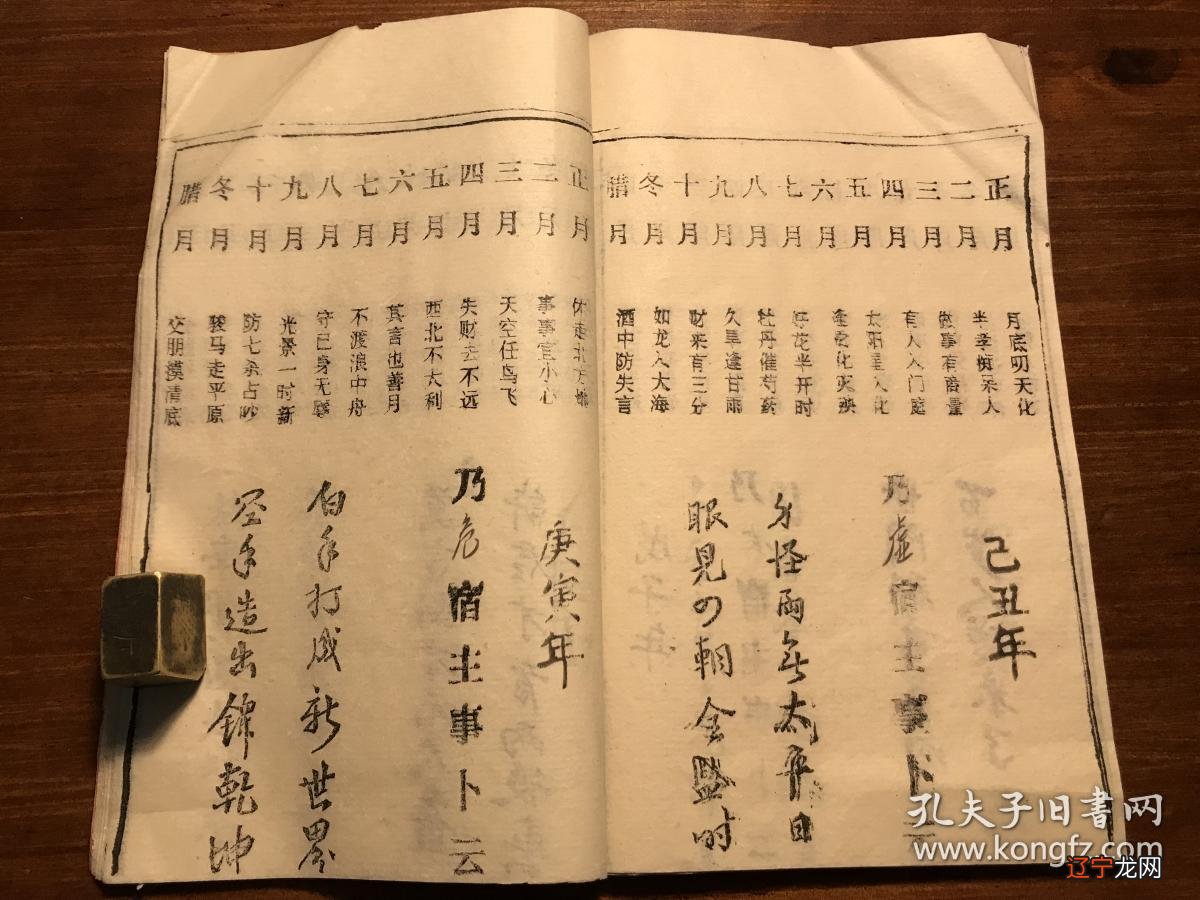 正月 月底明天化
二月 半孝痴呆人
三月 做事有商量
四月 有人入门庭
五月 太阳星入化
六月 逢受化灾殃
七月 好花半开时
八月 牡丹催芍药
九月 久旱逢甘雨
十月 财来有三分
冬月 如龙入大海
腊月 酒中防失言
己丑年
乃虚宿主事卜云
怪雨 太平日
眼见 朝金 时
正月
二月 事事宜小心
三月 天空任鸟飞
四月 失财去不远
五月 西北不大利
六月 其言也善月
七月 不渡浪中舟
八月 守己身无辱
九月 光景一时新
十月 防七杀占
冬月 骏马走平原
腊月 交朋摸清底
庚寅年
乃危宿主事卜云
白手打成新世界
空手造出锦乾坤
孔夫子旧书网
www.kongfz.com
辽宁龙网